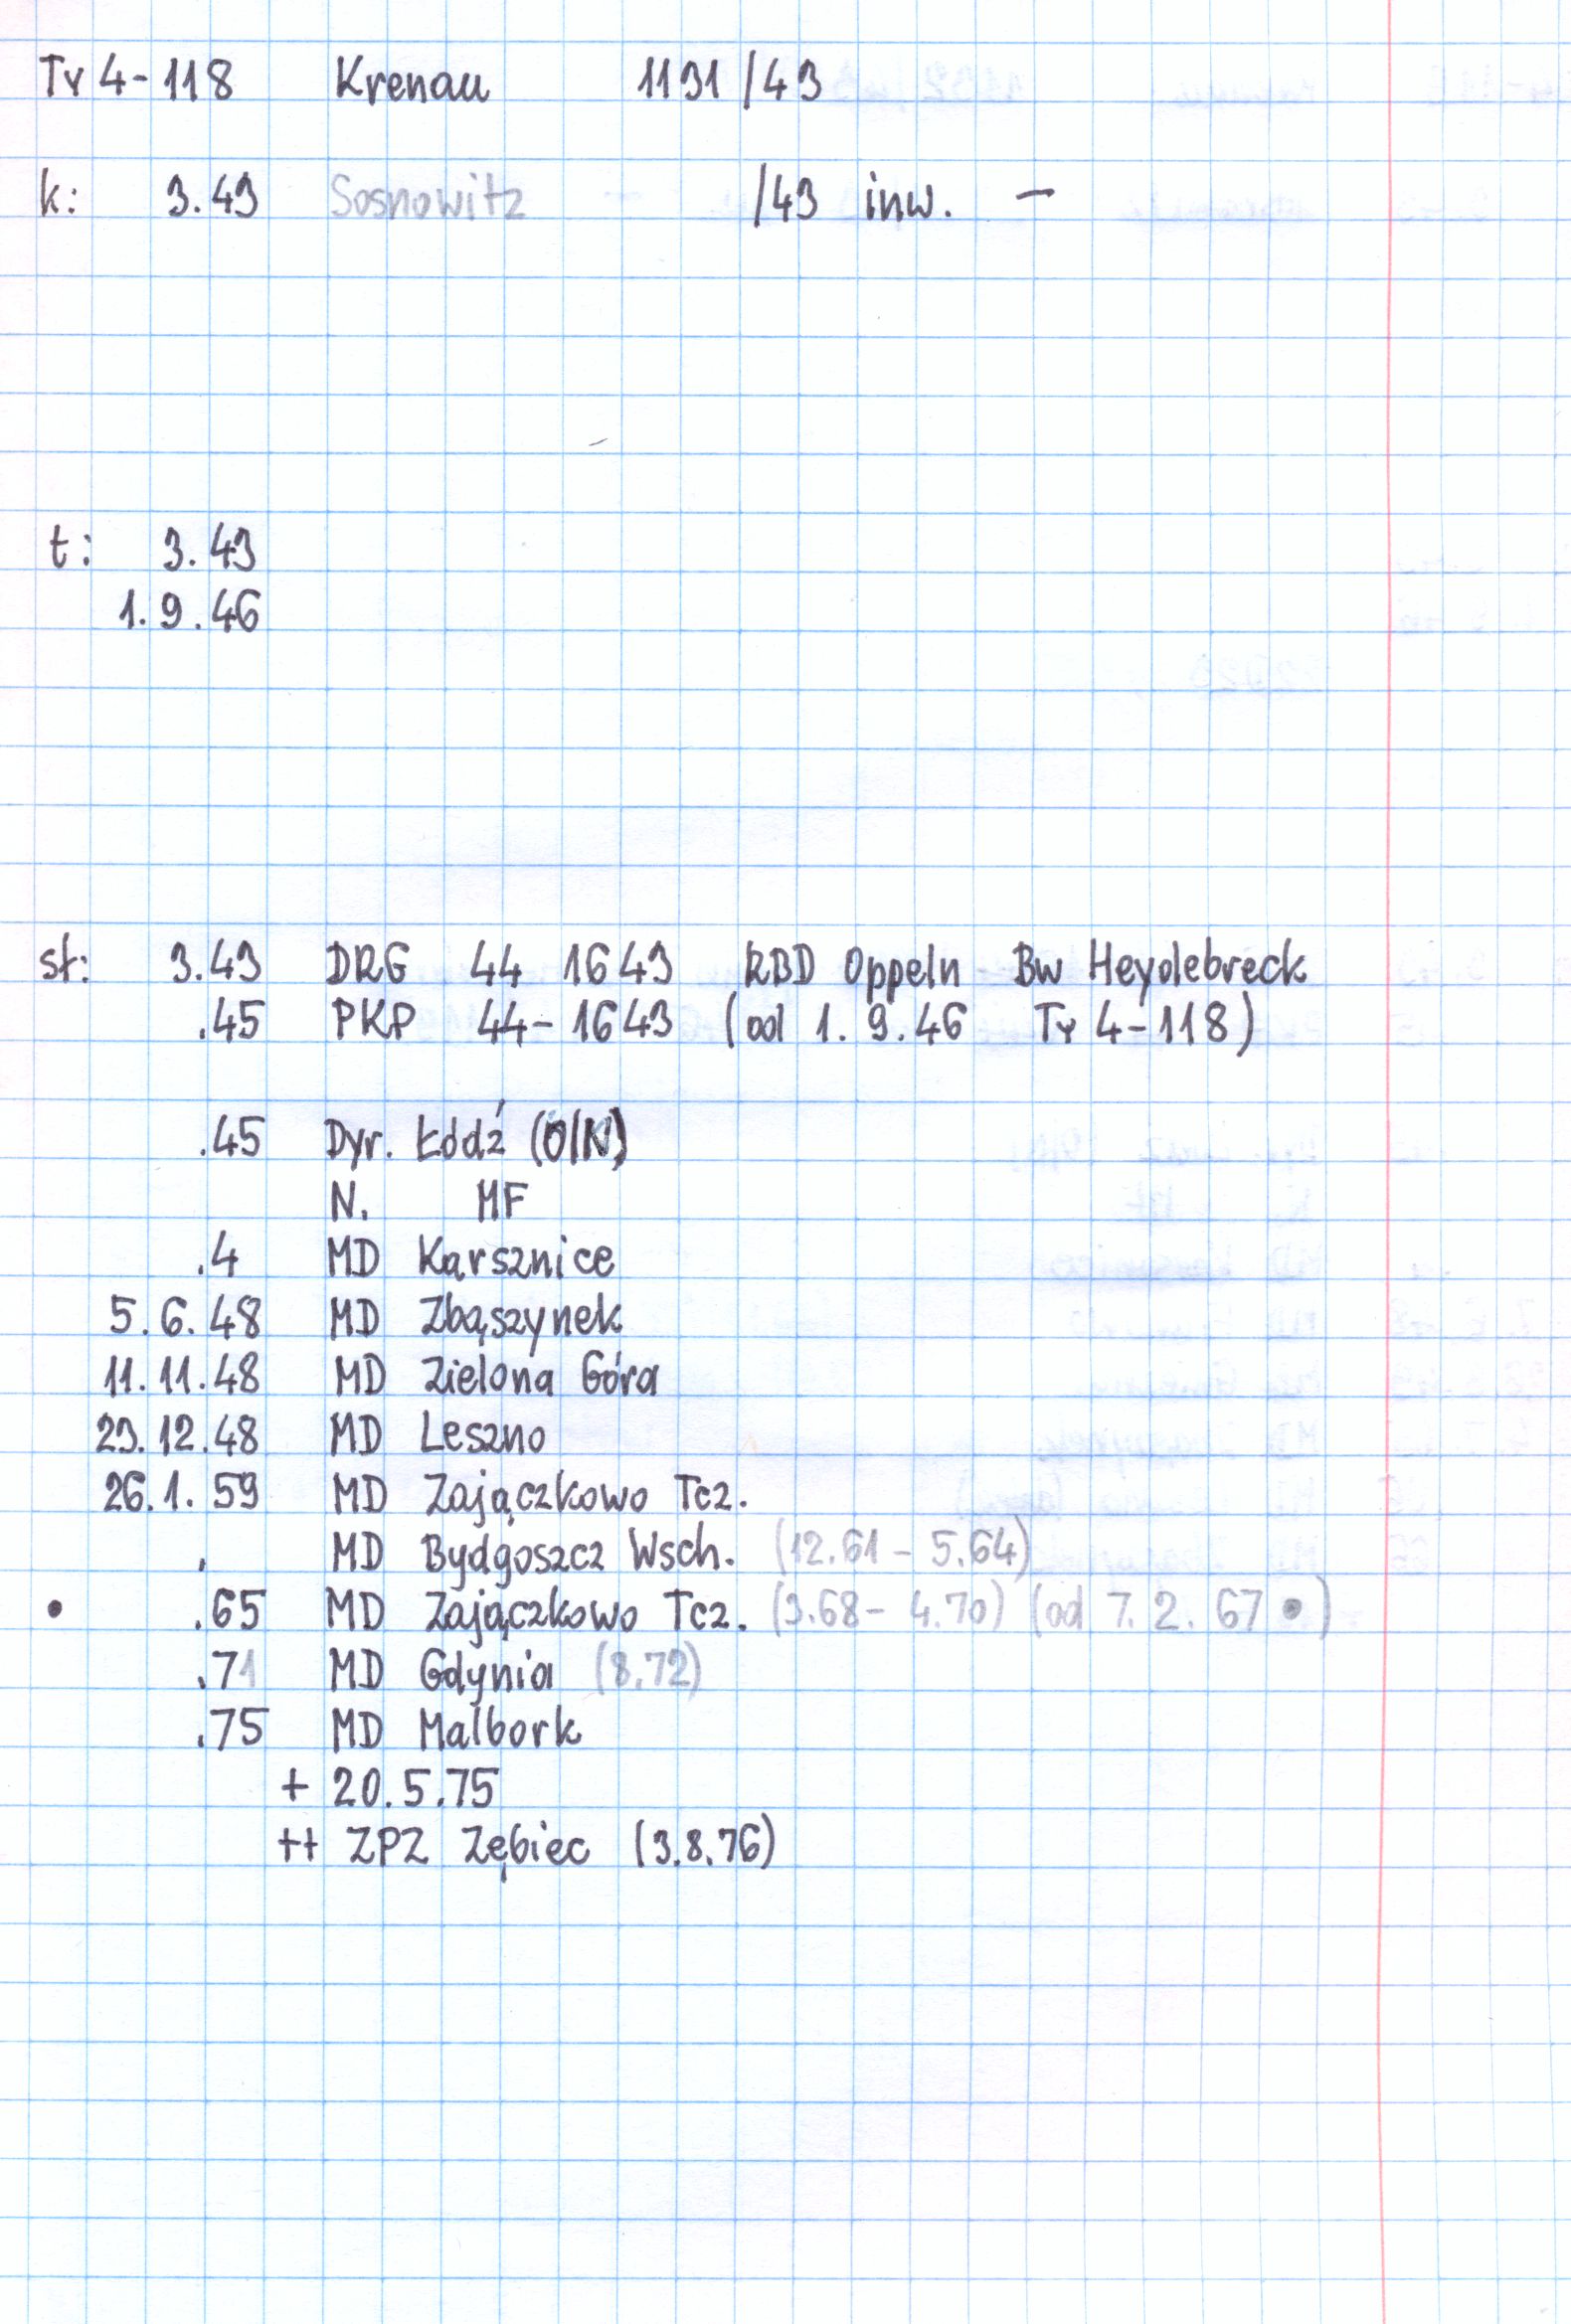 Ty 4-118 Krenau 1131/43
k: 3.43 Sosnowitz /43 inw. –
t: 3.43
1.9.46
st: 3.43 DRG 44 1643 RBD Oppeln Bw Heydebreck
.45 PKP 44-1643 (od 1.9.46 Ty 4-118)
.45 Dyr. Łódź (O/N)
N. MF
.4 MD Karsznice
5.6.48 MD Zbąszynek
11.11.48 MD Zielona Góra
23.12.48 MD Leszno
26.1.59 MD Zajączkowo Tcz.
. MD Bydgoszcz Wsch. (12.61 - 5.64)
• .65 MD Zajączkowo Tcz. (3.68 - 4.70) (od 7.2.67 •)
.71 MD Gdynia (8.72)
.75 MD Malbork
+ 20.5.75
++ ZPZ Zębiec (3.8.76)